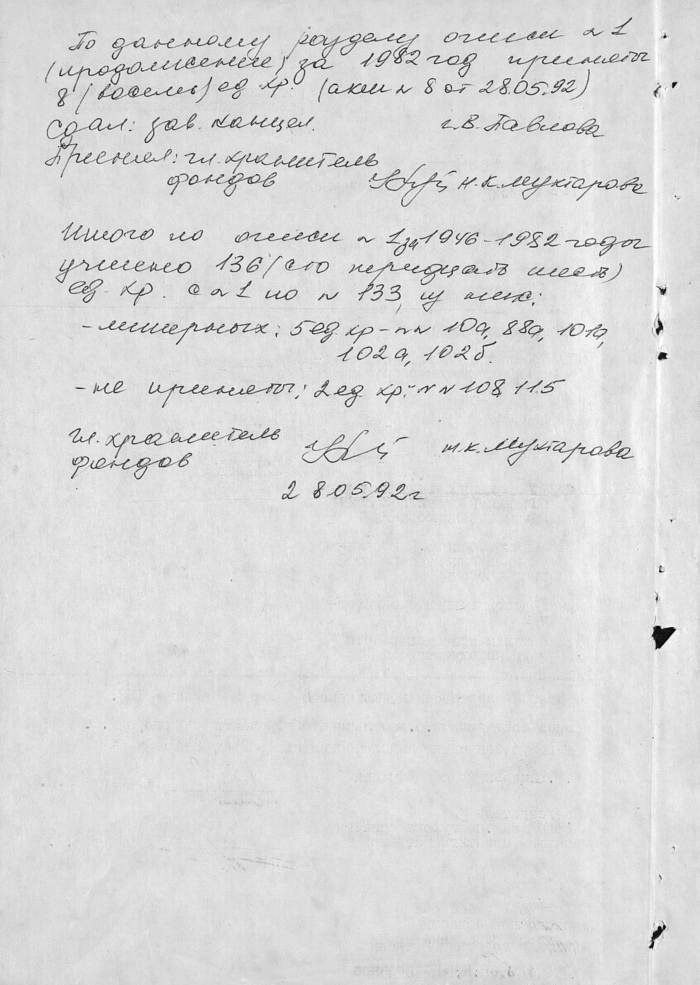 По данному разделу описи N 1
(продолжение) за 1982 год приняты
8 (восемь) ед. хр. (акт N 8 от 28.05.92)
Сдал: зав. канцел. г.В. Павлова
Принял: гл. хранитель
фондов Н.К. Мухтарова
Итого по описи N 1 за 1946-1982 годы
учтено 136 (сто тридцать шесть)
ед. хр. с N 1 по N 133, из них:
- литерных: 5 ед. хр - NN 10а, 88а, 101а,
102а, 102б.
- не приняты: 2 ед. хр: NN 108, 115
гл. хранитель
фондов Н.К. Мухтарова
28.05.92 г